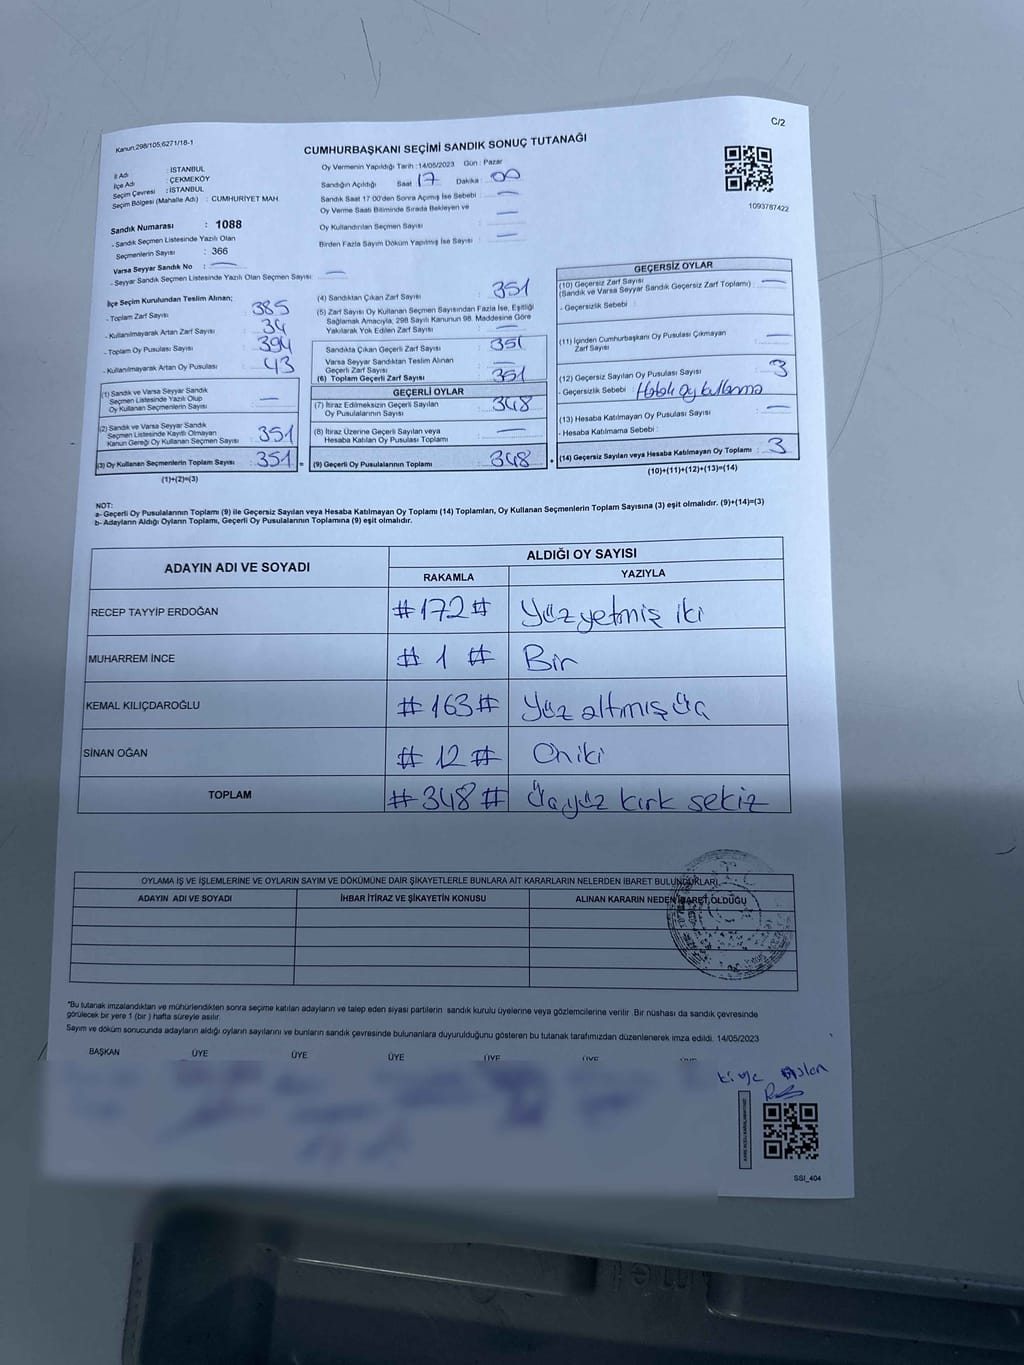 Kanun;298/105;6271/18-1
C/2
CUMHURBAŞKANI SEÇİMİ SANDIK SONUÇ TUTANAĞI
İl Adı : İSTANBUL
İlçe Adı : ÇEKMEKÖY
Seçim Çevresi : İSTANBUL
Seçim Bölgesi (Mahalle Adı) : CUMHURİYET MAH.
Sandık Numarası : 1088
- Sandık Seçmen Listesinde Yazılı Olan
Seçmenlerin Sayısı : 366
Varsa Seyyar Sandık No : —
- Seyyar Sandık Seçmen Listesinde Yazılı Olan Seçmen Sayısı: —
Oy Vermenin Yapıldığı Tarih :14/05/2023 Gün : Pazar
Sandığın Açıldığı Saat 17 Dakika : 00
Sandık Saat 17:00'den Sonra Açılmış İse Sebebi : —
Oy Verme Saati Bitiminde Sırada Bekleyen ve
Oy Kullandırılan Seçmen Sayısı : —
Birden Fazla Sayım Döküm Yapılmış İse Sayısı : —
1093787422
İlçe Seçim Kurulundan Teslim Alınan;
- Toplam Zarf Sayısı : 385
- Kullanılmayarak Artan Zarf Sayısı : 34
- Toplam Oy Pusulası Sayısı : 394
- Kullanılmayarak Artan Oy Pusulası : 43
(1) Sandık ve Varsa Seyyar Sandık
Seçmen Listesinde Yazılı Olup
Oy Kullanan Seçmenlerin Sayısı : —
(2) Sandık ve Varsa Seyyar Sandık
Seçmen Listesinde Kayıtlı Olmayan
Kanun Gereği Oy Kullanan Seçmen Sayısı : 351
(3) Oy Kullanan Seçmenlerin Toplam Sayısı : 351 =
(1)+(2)=(3)
(4) Sandıktan Çıkan Zarf Sayısı : 351
(5) Zarf Sayısı Oy Kullanan Seçmen Sayısından Fazla İse, Eşitliği
Sağlamak Amacıyla, 298 Sayılı Kanunun 98. Maddesine Göre
Yakılarak Yok Edilen Zarf Sayısı : —
Sandıkta Çıkan Geçerli Zarf Sayısı : 351
Varsa Seyyar Sandıktan Teslim Alınan
Geçerli Zarf Sayısı : —
(6) Toplam Geçerli Zarf Sayısı : 351
GEÇERLİ OYLAR
(7) İtiraz Edilmeksizin Geçerli Sayılan
Oy Pusulalarının Sayısı : 348
(8) İtiraz Üzerine Geçerli Sayılan veya
Hesaba Katılan Oy Pusulası Toplamı : —
(9) Geçerli Oy Pusulalarının Toplamı : 348 +
GEÇERSİZ OYLAR
(10) Geçersiz Zarf Sayısı : —
(Sandık ve Varsa Seyyar Sandık Geçersiz Zarf Toplamı)
- Geçersizlik Sebebi :
(11) İçinden Cumhurbaşkanı Oy Pusulası Çıkmayan
Zarf Sayısı : —
(12) Geçersiz Sayılan Oy Pusulası Sayısı : 3
- Geçersizlik Sebebi : Hatalı Oy kullanma
(13) Hesaba Katılmayan Oy Pusulası Sayısı : —
- Hesaba Katılmama Sebebi :
(14) Geçersiz Sayılan veya Hesaba Katılmayan Oy Toplamı : 3
(10)+(11)+(12)+(13)=(14)
NOT:
a- Geçerli Oy Pusulalarının Toplamı (9) ile Geçersiz Sayılan veya Hesaba Katılmayan Oy Toplamı (14) Toplamları, Oy Kullanan Seçmenlerin Toplam Sayısına (3) eşit olmalıdır. (9)+(14)=(3)
b- Adayların Aldığı Oyların Toplamı, Geçerli Oy Pusulalarının Toplamına (9) eşit olmalıdır.
ADAYIN ADI VE SOYADI
ALDIĞI OY SAYISI
RAKAMLA YAZIYLA
RECEP TAYYİP ERDOĞAN #172# Yüzyetmiş iki
MUHARREM İNCE # 1 # Bir
KEMAL KILIÇDAROĞLU #163# Yüz altmış üç
SİNAN OĞAN # 12 # Oniki
TOPLAM #348# Üçyüz kırk sekiz
OYLAMA İŞ VE İŞLEMLERİNE VE OYLARIN SAYIM VE DÖKÜMÜNE DAİR ŞİKAYETLERLE BUNLARA AİT KARARLARIN NELERDEN İBARET BULUNDUKLARI
ADAYIN ADI VE SOYADI İHBAR İTİRAZ VE ŞİKAYETİN KONUSU ALINAN KARARIN NEDEN İBARET OLDUĞU
*Bu tutanak imzalandıktan ve mühürlendikten sonra seçime katılan adayların ve talep eden siyasi partilerin sandık kurulu üyelerine veya gözlemcilerine verilir. Bir nüshası da sandık çevresinde
görülecek bir yere 1 (bir ) hafta süreyle asılır.
Sayım ve döküm sonucunda adayların aldığı oyların sayılarını ve bunların sandık çevresinde bulunanlara duyurulduğunu gösteren bu tutanak tarafımızdan düzenlenerek imza edildi. 14/05/2023
BAŞKAN ÜYE ÜYE ÜYE ÜYE ÜYE
SSI_404